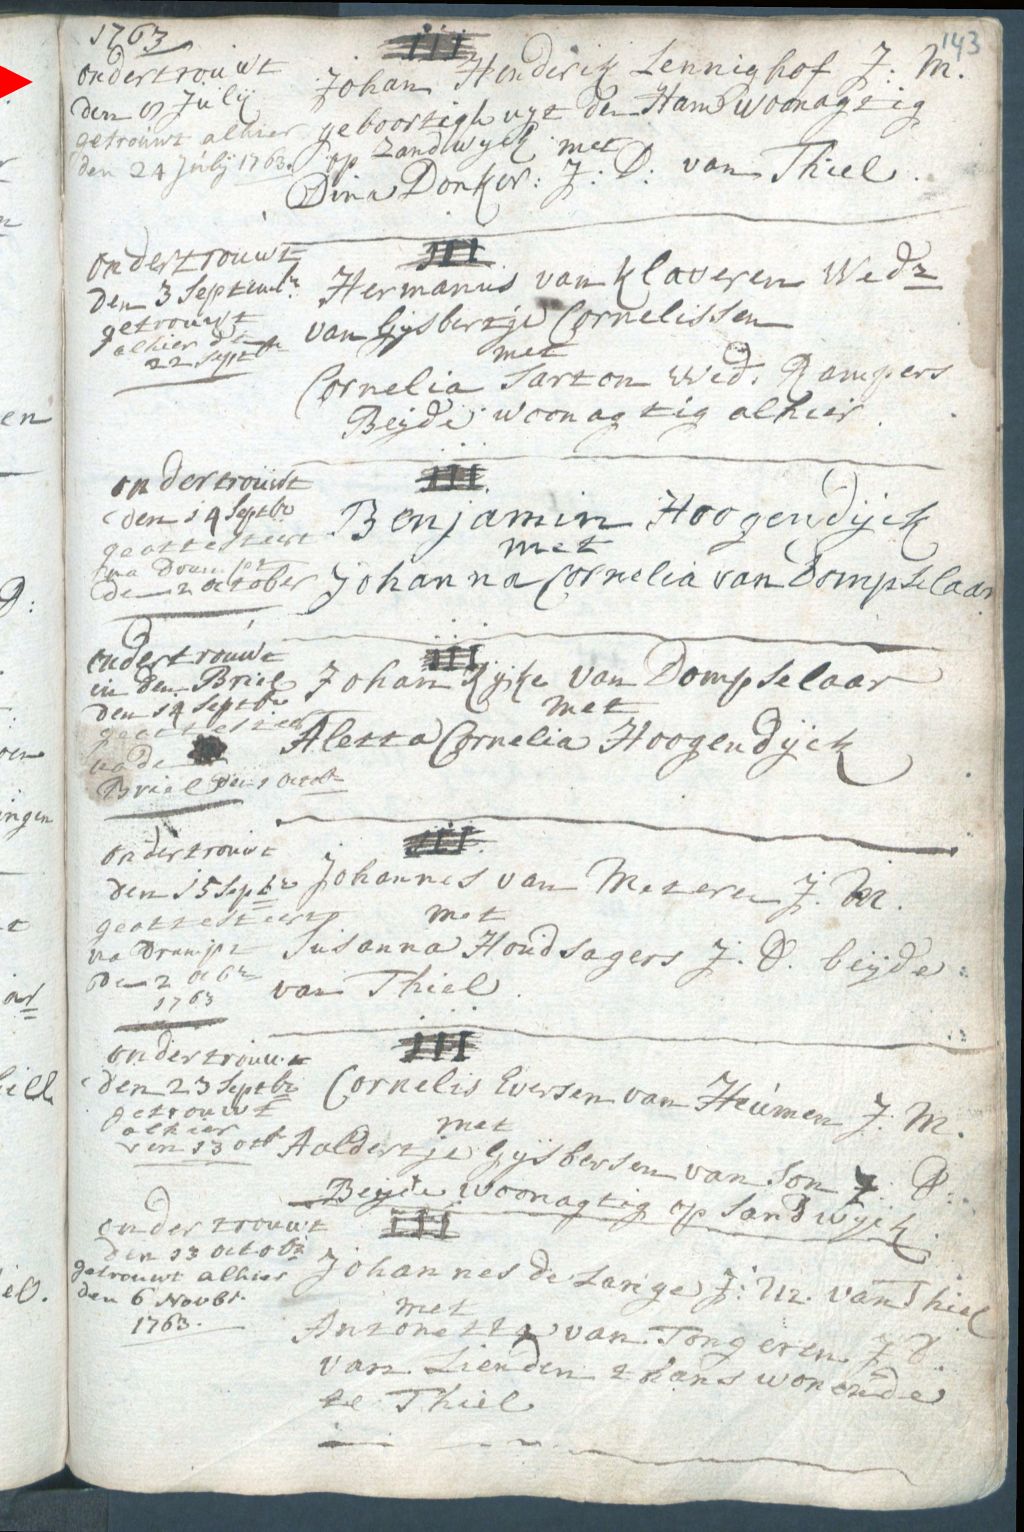 143
1763
ondertrouwt
den 9 Julij
getrouwt alhier
den 24 Julij 1763.
III
Johan Henderik Lennighof J: M.
geboortigh uyt den Ham woonagtig
op Zandwyck met
Dina Donker: J: D: van Thiel.
ondertrouwt
den 3 Septembr
getrouwt
alhier de
22 Septbr
III
Hermanus van Klaveren Wedr
van Gysbertje Cornelissen
met
Cornelia Sarton Wed. Rampers
Beyde woonagtig alhier.
ondertrouwt
den 14 Septbr
geattesteert
na
de 2 october
III
Benjamin Hoogendijck
met
Johanna Cornelia van Dompselaar
ondertrouwt
in den Briel
den 14 Septbr
geattesteert
na de
Briel den 1 octobr
III
Johan Ryke van Dompselaar
met
Aletta Cornelia Hoogendijck
ondertrouwt
den 15 Septr
geattesteert
na Drumpt
de 2 octbr
1763
III
Johannes van Meteren J. M.
met
Susanna Houdsagers J. D. beyde
van Thiel.
ondertrouwt
den 23 Septbr
getrouwt
alhier
den 13 octb
III
Cornelis Eversen van Heumen J. M.
met
Aaldertje Gysbersen van Son J: D:
Beyde woonagtig op Sandwyck.
ondertrouwt
den 13 octobr
getrouwt alhier
den 6 Novbr.
1763.
III
Johannes de Lange J: M. van Thiel
met
Antonetta van Tongeren J D.
van Lienden thans wonende
te Thiel